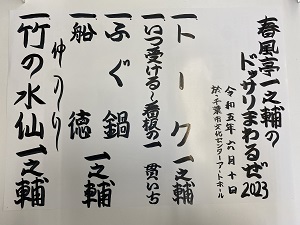 春風亭一之輔の
ドッサリまわるぜ
2023
令和五年六月十日
於・千葉市文化センターアートホール
一トーク 一之輔
一いつ受ける〜看板の一 貫いち
一ふぐ鍋 一之輔
一船徳
仲入り
一竹の水仙 一之輔